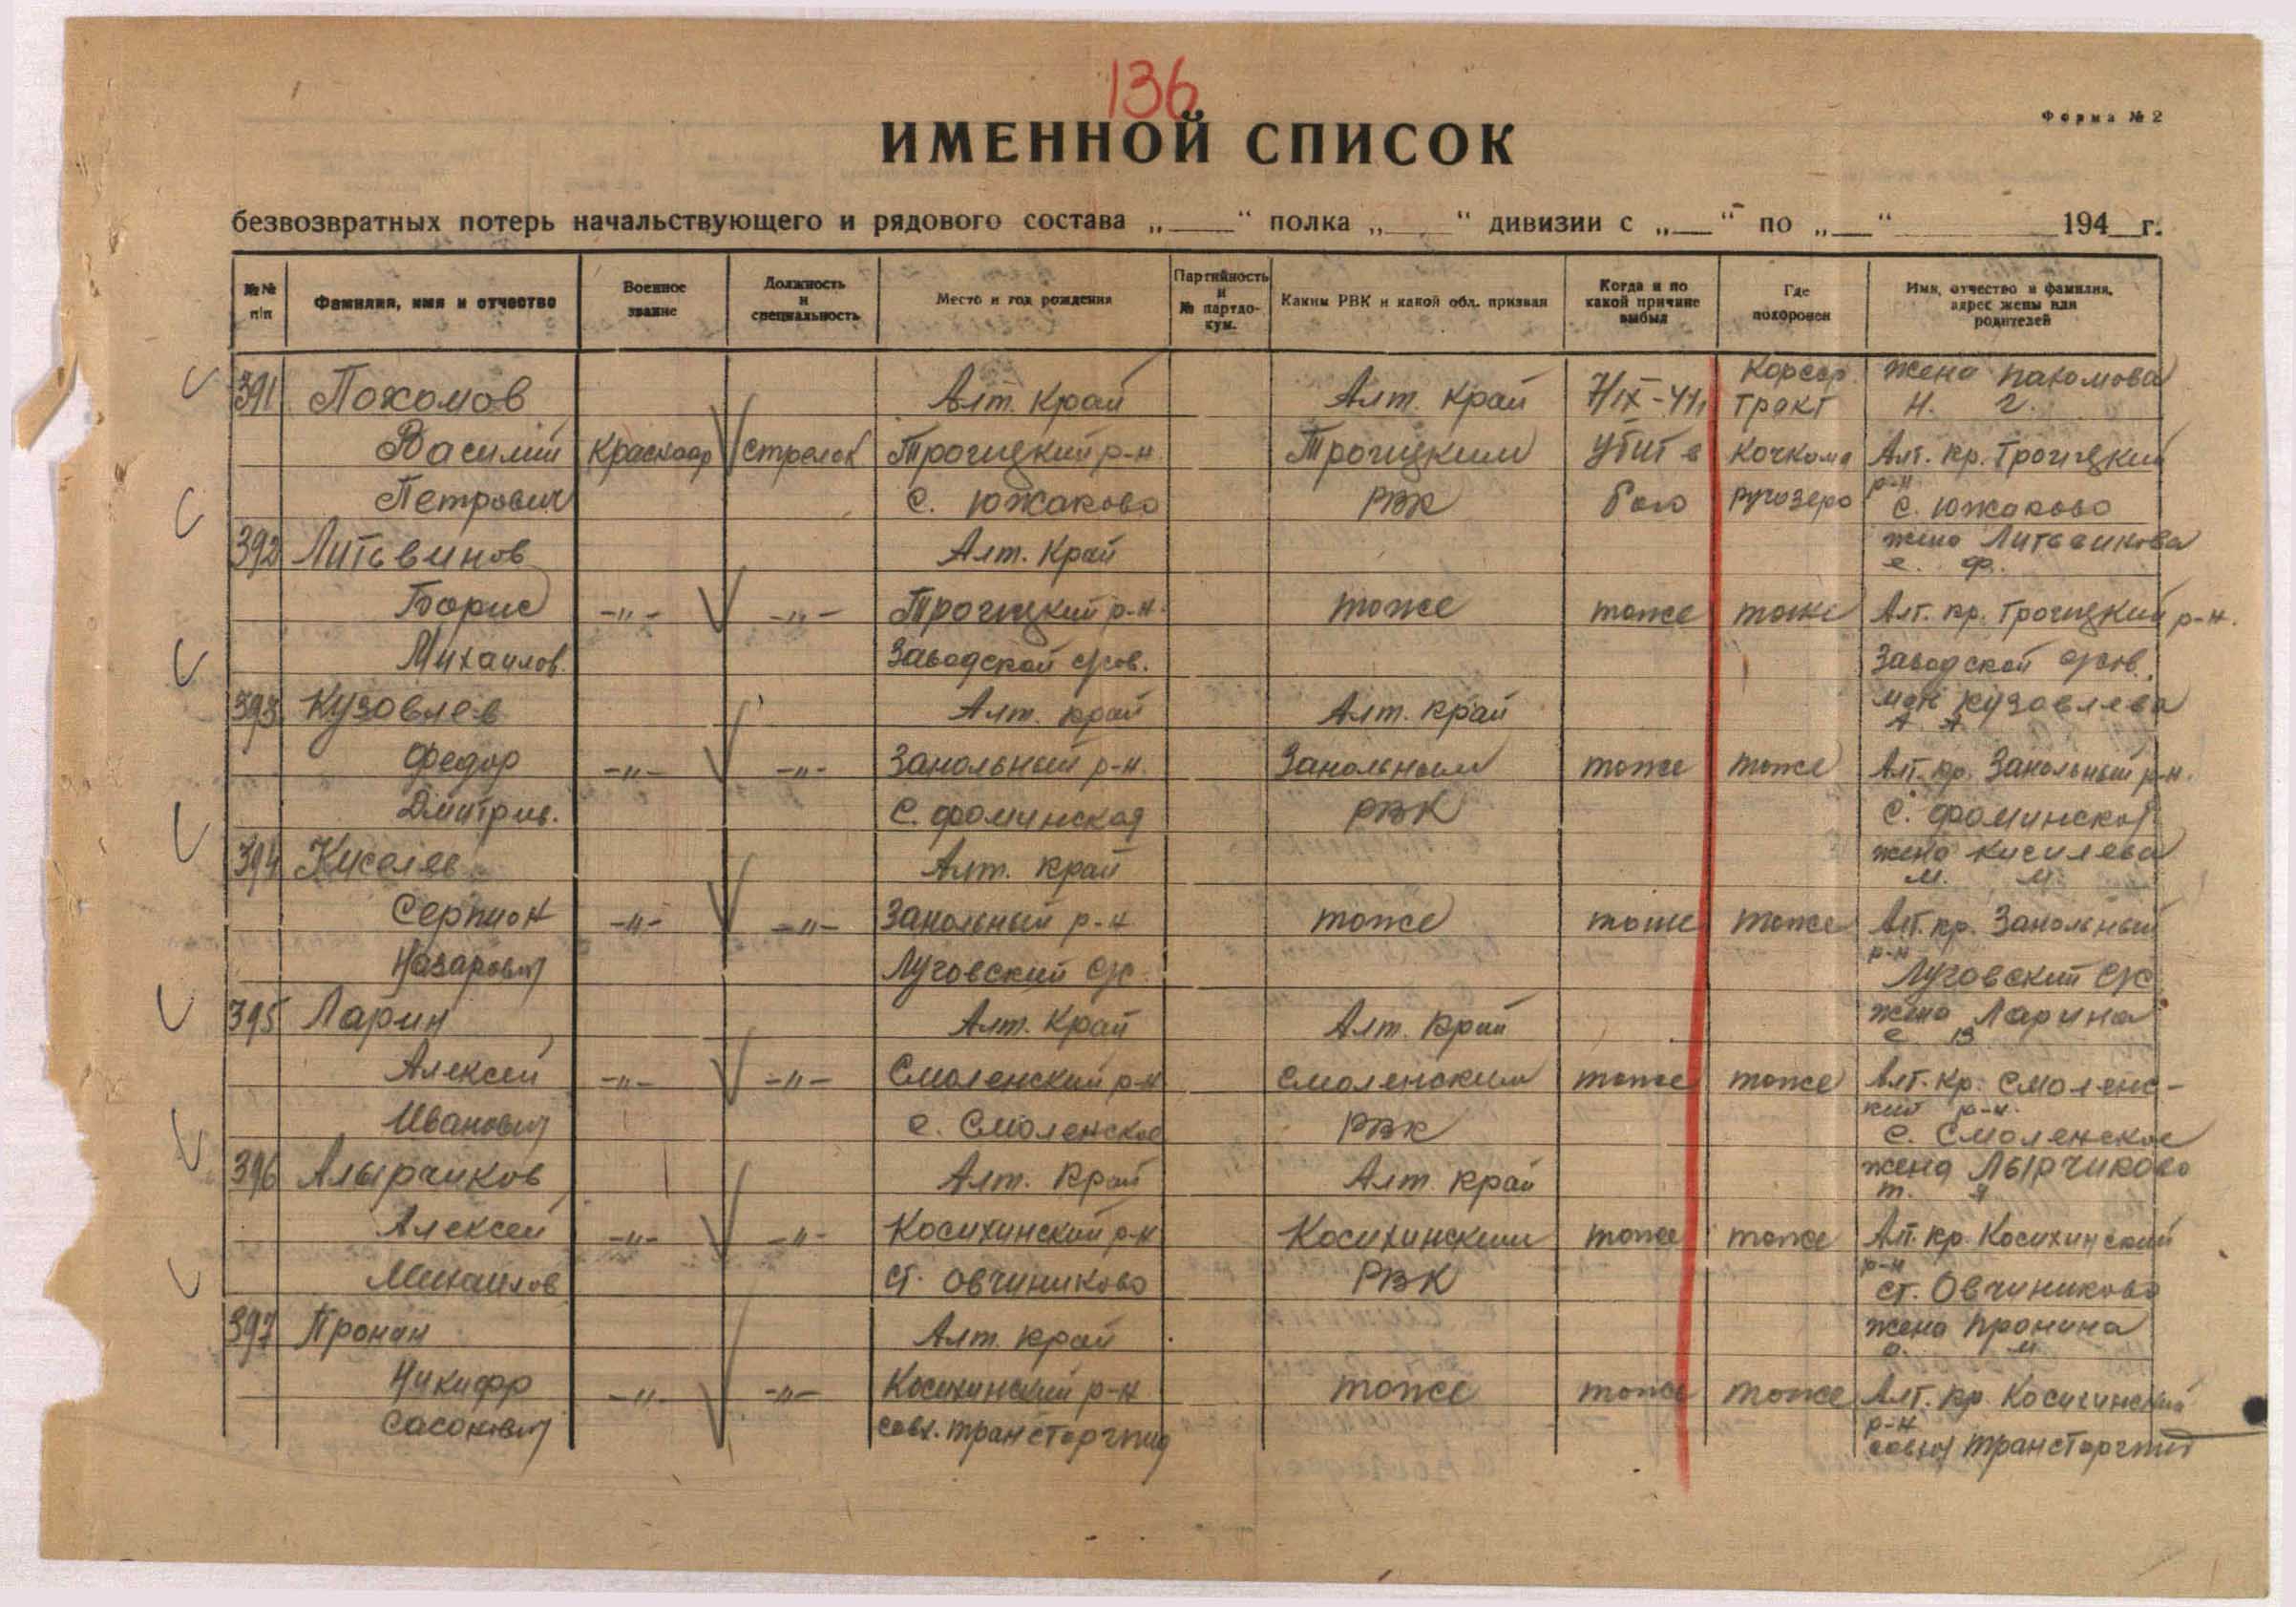 136
Форма № 2
ИМЕННОЙ СПИСОК
безвозвратных потерь начальствующего и рядового состава „____“ полка „____“ дивизии с „___“ по „___“ 194__г.
№№ п/п
Фамилия, имя и отчество
Военное звание
Должность и специальность
Место и год рождения
Партийность и № партдокум.
Каким РВК и какой обл. призван
Когда и по какой причине выбыл
Где похоронен
Имя, отчество и фамилия, адрес жены или родителей
391 Похомов Алт. Край Алт. Край 7/IX-41г Тракт жена Пахомова Н. Г.
Василий Стрелок Троицкий р-н Троицким убит в Кочкома Алт. кр. Троицкий р-н
Петрович с. Южаково РВК бою ругозеро с. Южаково
392 Литьвинов Алт. Край жена Литьвинова е. ф.
Борис -"- -"- Троицкий р-н тоже тоже тоже Алт. кр. Троицкий р-н.
Михаилов. Заводской Заводской
393 Кузовлев Алт. край Алт. край Кузовлева А А
Федор -"- -"- Занольный р-н. Занольным тоже тоже Алт. кр. Занольный р-н.
Дмитрив. С. Фоминская РВК С. Фоминской
394 Киселев Алт. край жена Кисилева М. М.
Серпион -"- -"- Занольный р-н тоже тоже тоже Алт. кр. Занольный р-н
Назарович Луговский с/с. Луговский с/с
395 Ларин Алт. Край Алт. край жена Ларина е В
Алексей -"- -"- Смоленский р-н Смоленским тоже тоже Алт. кр. Смоленс-
кий р-н.
Иванович с. Смоленское РВК с. Смоленское
396 Алырчиков Алт. Край Алт. край жена Лырчиково т. я
Алексей -"- -"- Косихинский р-н Косихинским тоже тоже Алт. кр. Косихинский р-н
Михаилов ст. Овчиниково РВК ст. Овчиниково
397 Пронин Алт. край жена Пронина
Никифр -"- -"- Косихинский р-н тоже тоже тоже Алт. кр. Косихинский р-н
Сасонович